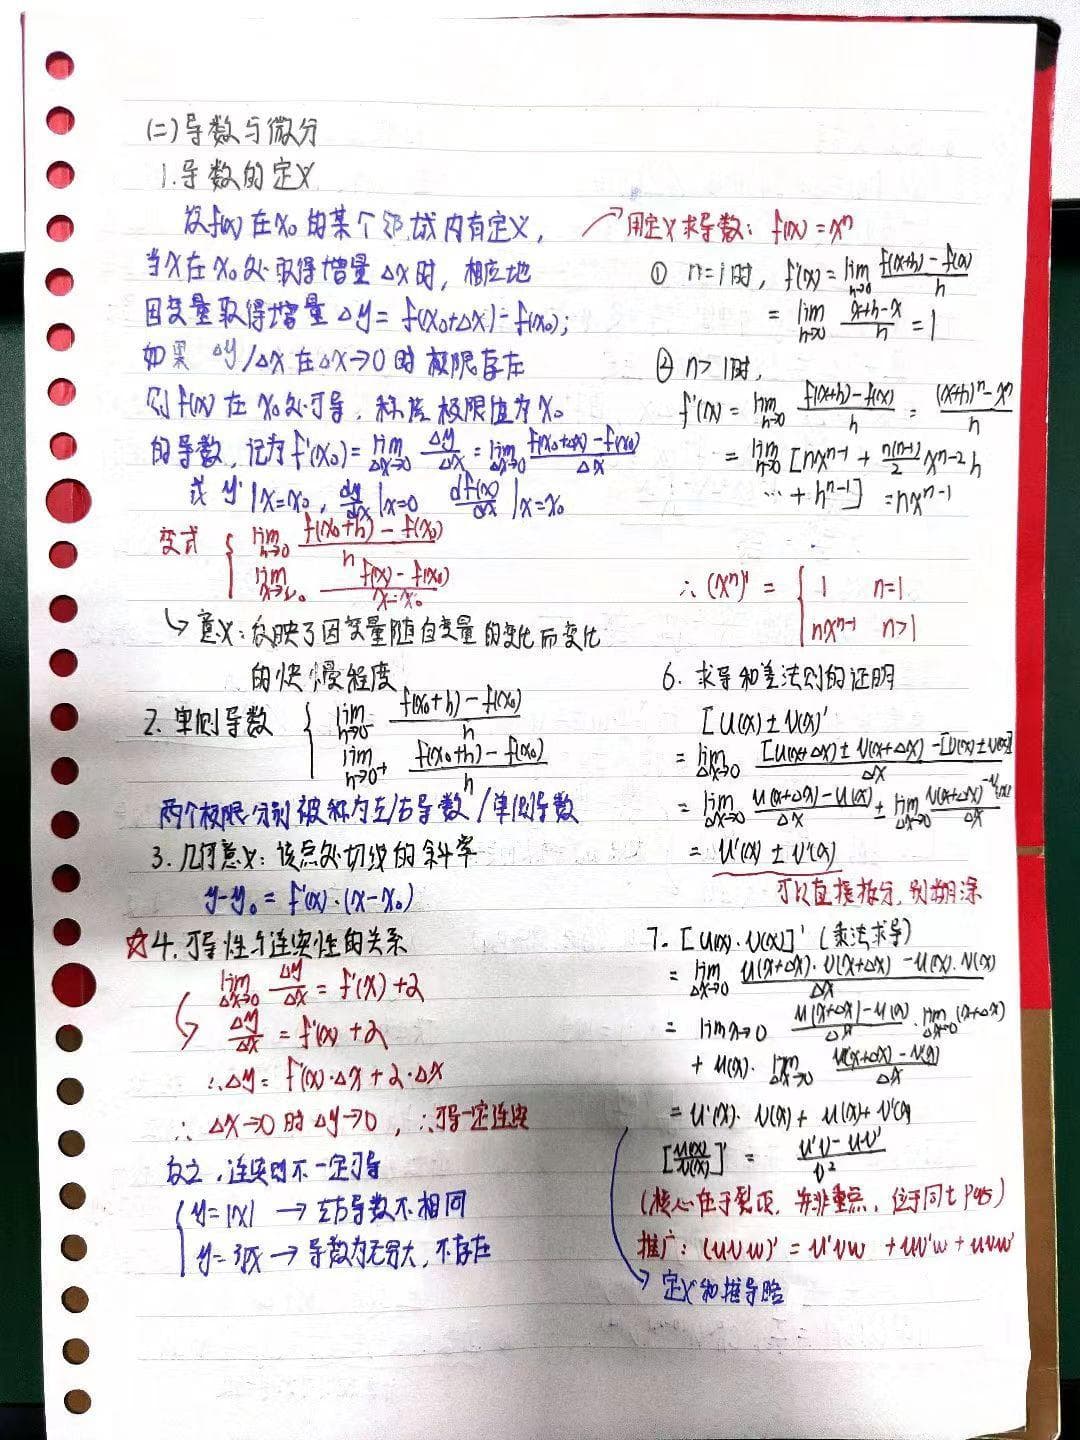 (二)导数与微分
1.导数的定义
设f(x)在x₀的某个邻域内有定义,
当x在x₀处取得增量Δx时,相应地
因变量取得增量Δy=f(x₀+Δx)-f(x₀);
如果Δy/Δx在Δx→0时极限存在
则f(x)在x₀处可导,称该极限值为x₀
的导数,记为f'(x₀)=lim Δx→0 Δy/Δx=lim Δx→0 (f(x₀+Δx)-f(x₀))/Δx
或y'|x=x₀, dy/dx|x=0 df(x)/dx|x=x₀
变式 { lim h→0 (f(x₀+h)-f(x₀))/h
lim x→x₀ (f(x)-f(x₀))/(x-x₀)
↳意义:反映了因变量随自变量的变化而变化
的快慢程度
2.单侧导数 { lim h→0⁻ (f(x₀+h)-f(x₀))/h
lim h→0⁺ (f(x₀+h)-f(x₀))/h
两个极限分别被称为左/右导数/单侧导数
3.几何意义:该点处切线的斜率
y-y₀=f'(x)·(x-x₀)
☆4.可导性与连续性的关系
lim Δx→0 Δy/Δx=f'(x)+2
Δy/Δx=f'(x)+2
∴Δy=f'(x)·Δx+2·Δx
∴Δx→0时Δy→0,∴可导一定连续
反之,连续时不一定可导
{ y=|x| →左右导数不相同
y=3√x→导数为无穷大,不存在
↗用定义求导数:f(x)=xⁿ
① n=1时,f'(x)=lim h→0 (f(x+h)-f(x))/h
=lim h→0 (x+h-x)/h=1
② n>1时,
f'(x)=lim h→0 (f(x+h)-f(x))/h=((x+h)ⁿ-xⁿ)/h
=lim h→0 [nxⁿ⁻¹+n(n-1)/2 xⁿ⁻²h
…+hⁿ⁻¹]=nxⁿ⁻¹
∴(xⁿ)'={ 1 n=1
nxⁿ⁻¹ n>1
6.求导和差法则的证明
[u(x)±v(x)]'
=lim Δx→0 ([u(x+Δx)±v(x+Δx)-[u(x)±v(x)])/Δx
=lim Δx→0 (u(x+Δx)-u(x))/Δx±lim Δx→0 (v(x+Δx)-v(x))/Δx
=u'(x)±v'(x)
可以直接拆分,别糊涂
7.[u(x)·v(x)]'(乘法求导)
=lim Δx→0 (u(x+Δx)·v(x+Δx)-u(x)·v(x))/Δx
=lim x→0 (u(x+Δx)-u(x))/Δx·lim Δx→0 (x+Δx)
+u(x)·lim Δx→0 (v(x+Δx)-v(x))/Δx
=u'(x)·v(x)+u(x)+v'(x)
[u(x)/v(x)]'=(u'v-uv')/v²
(核心在于裂项,并非重点,位于同七P85)
推广:(uvw)'=u'vw+uv'w+uvw'
→定义和推导略